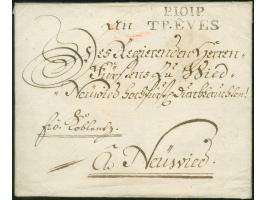 P.101.P.
TREVES
An
Des Regierenden Herren
Fürstens zu Wied
Neuwied hochfürstl: Durchleuchten!
fco. Coblentz.
à Neüwied.